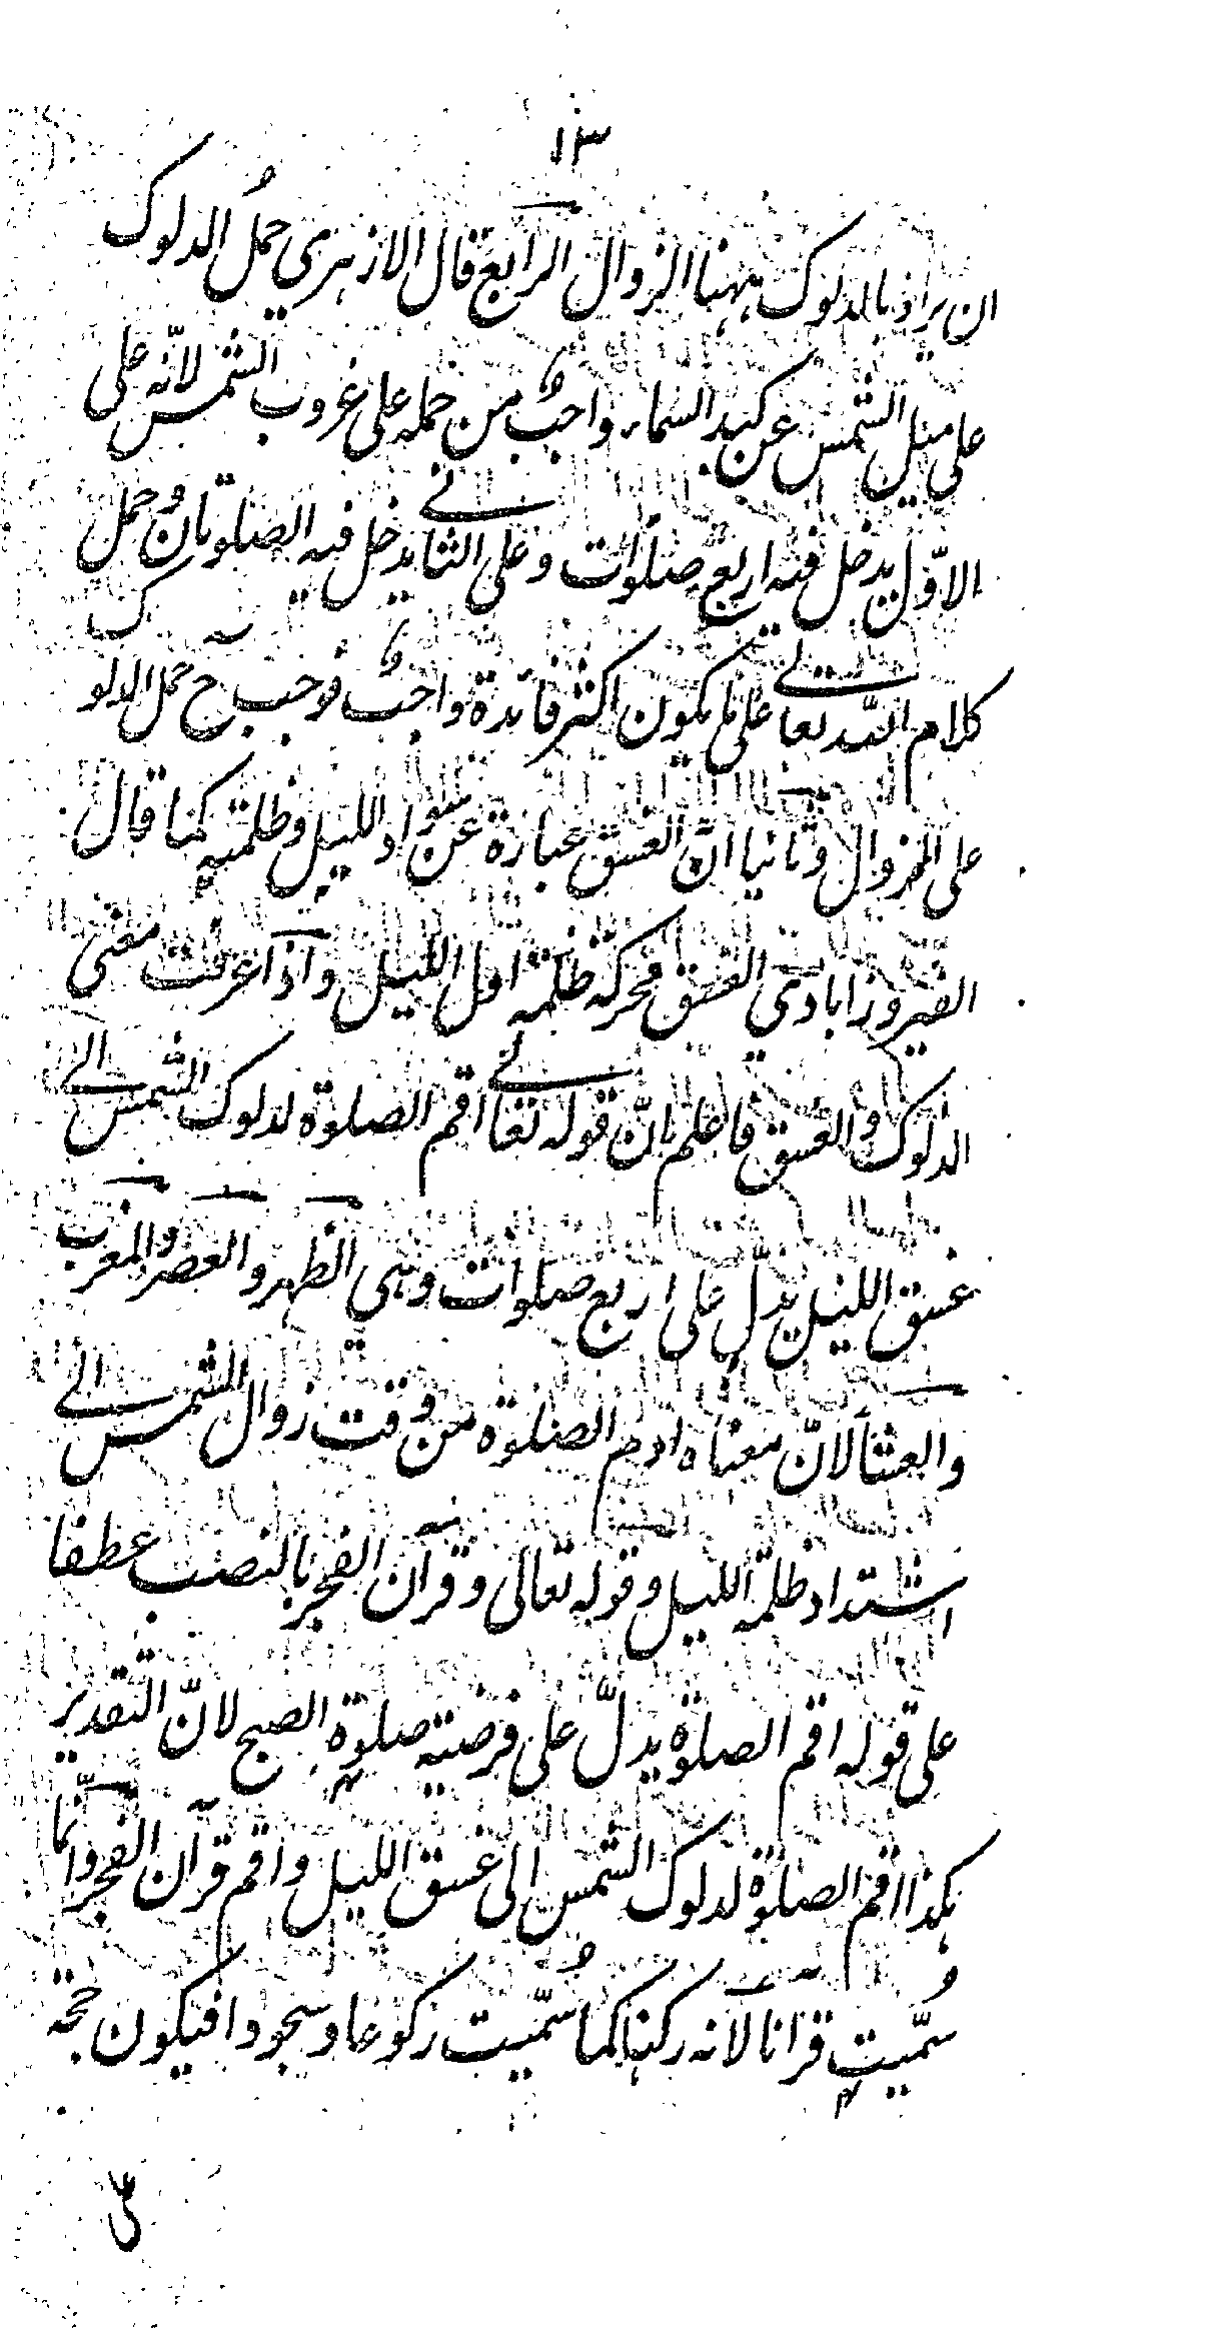 ١٣
ان يراد بالدلوك ههنا الزوال الرابع قال الازهري حمل الدلوك
على ميل الشمس عن كبد السماء واجبٌ من حمله على غروب الشمس لانّه على
الاوّل يدخل فيه اربع صلوات وعلى الثاني يدخل فيه الصلوتان وحمل
كلام الله تعالى على ما يكون اكثر فائدة واجبٌ فوجب ح حمل الدلوك
على الزوال وثانيا انّ الغسق عبارة عن سواد الليل وظلمته كما قال
الفيروزابادى الغسق محركة ظلمة اول الليل واذا عرفت معنى
الدلوك والغسق فاعلم بانّ قوله تعالى اقم الصلوة لدلوك الشمس الى
غسق الليل يدلّ على اربع صلوات وهى الظهر والعصر والمغرب
والعشا لانّ معناه ادم الصلوة من وقت زوال الشمس الى
اشتداد ظلمة الليل وقوله تعالى وقرآن الفجر بالنصب عطفا
على قوله اقم الصلوة يدلّ على فرضية صلوة الصبح لانّ التقدير
هكذا اقم الصلوة لدلوك الشمس الى غسق الليل واقم قرآن الفجر وانّما
سُمّيت قرانا لانه ركنها كما سُمّيت ركوعا وسجودا فيكون حجّة
على